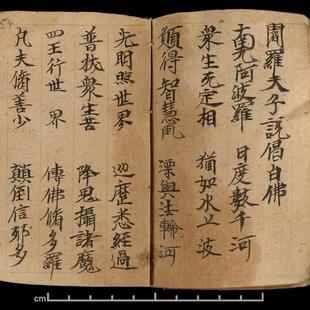 閻羅天子說偈白佛
南无阿波羅　日度數千河
衆生无定相　猶如水上波
願得智慧風　漂與法輪河
光明照世界　巡歷悉經過
普拔衆生苦　降鬼攝諸魔
四王行世界　傳佛脩多羅
凡夫脩善少　顛倒信邪多
cm